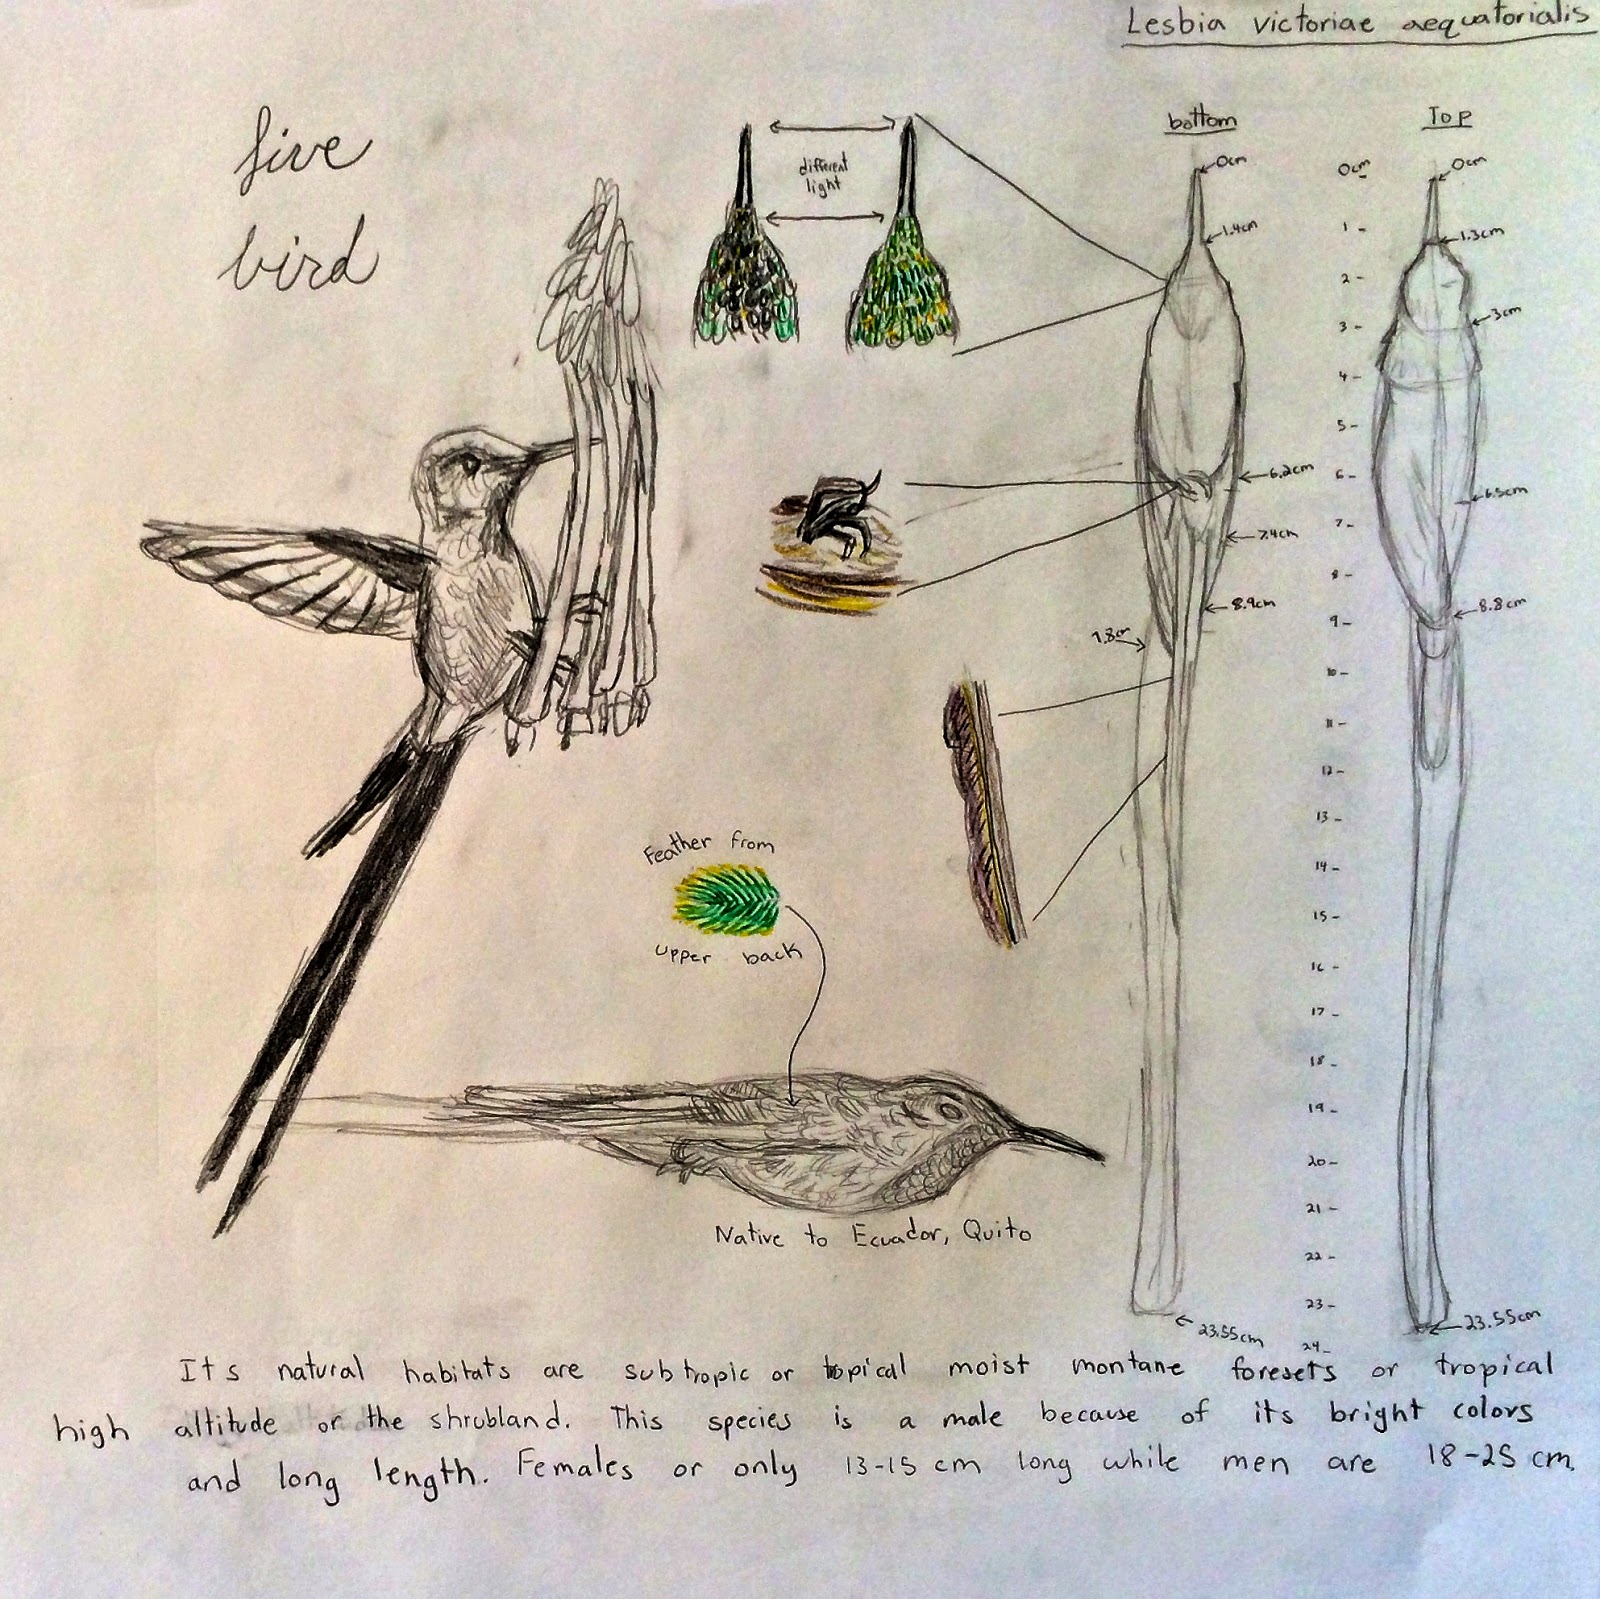 Lesbia victoriae aequatorialis
five
bird
different
light
bottom
0cm
1.4cm
6.2cm
7.4cm
8.9cm
9.8cm
23.55cm
0cm
1-
2-
3-
4-
5-
6-
7-
8-
9-
10-
11-
12-
13-
14-
15-
16-
17-
18-
19-
20-
21-
22-
23-
24-
Top
0cm
1.3cm
3cm
6.5cm
8.8cm
23.55cm
Feather from
upper back
Native to Ecuador, Quito
Its natural habitats are subtropic or topical moist montane foresets or tropical
high altitude or the shrubland. This species is a male because of its bright colors
and long length. Females or only 13-15 cm long while men are 18-25 cm.